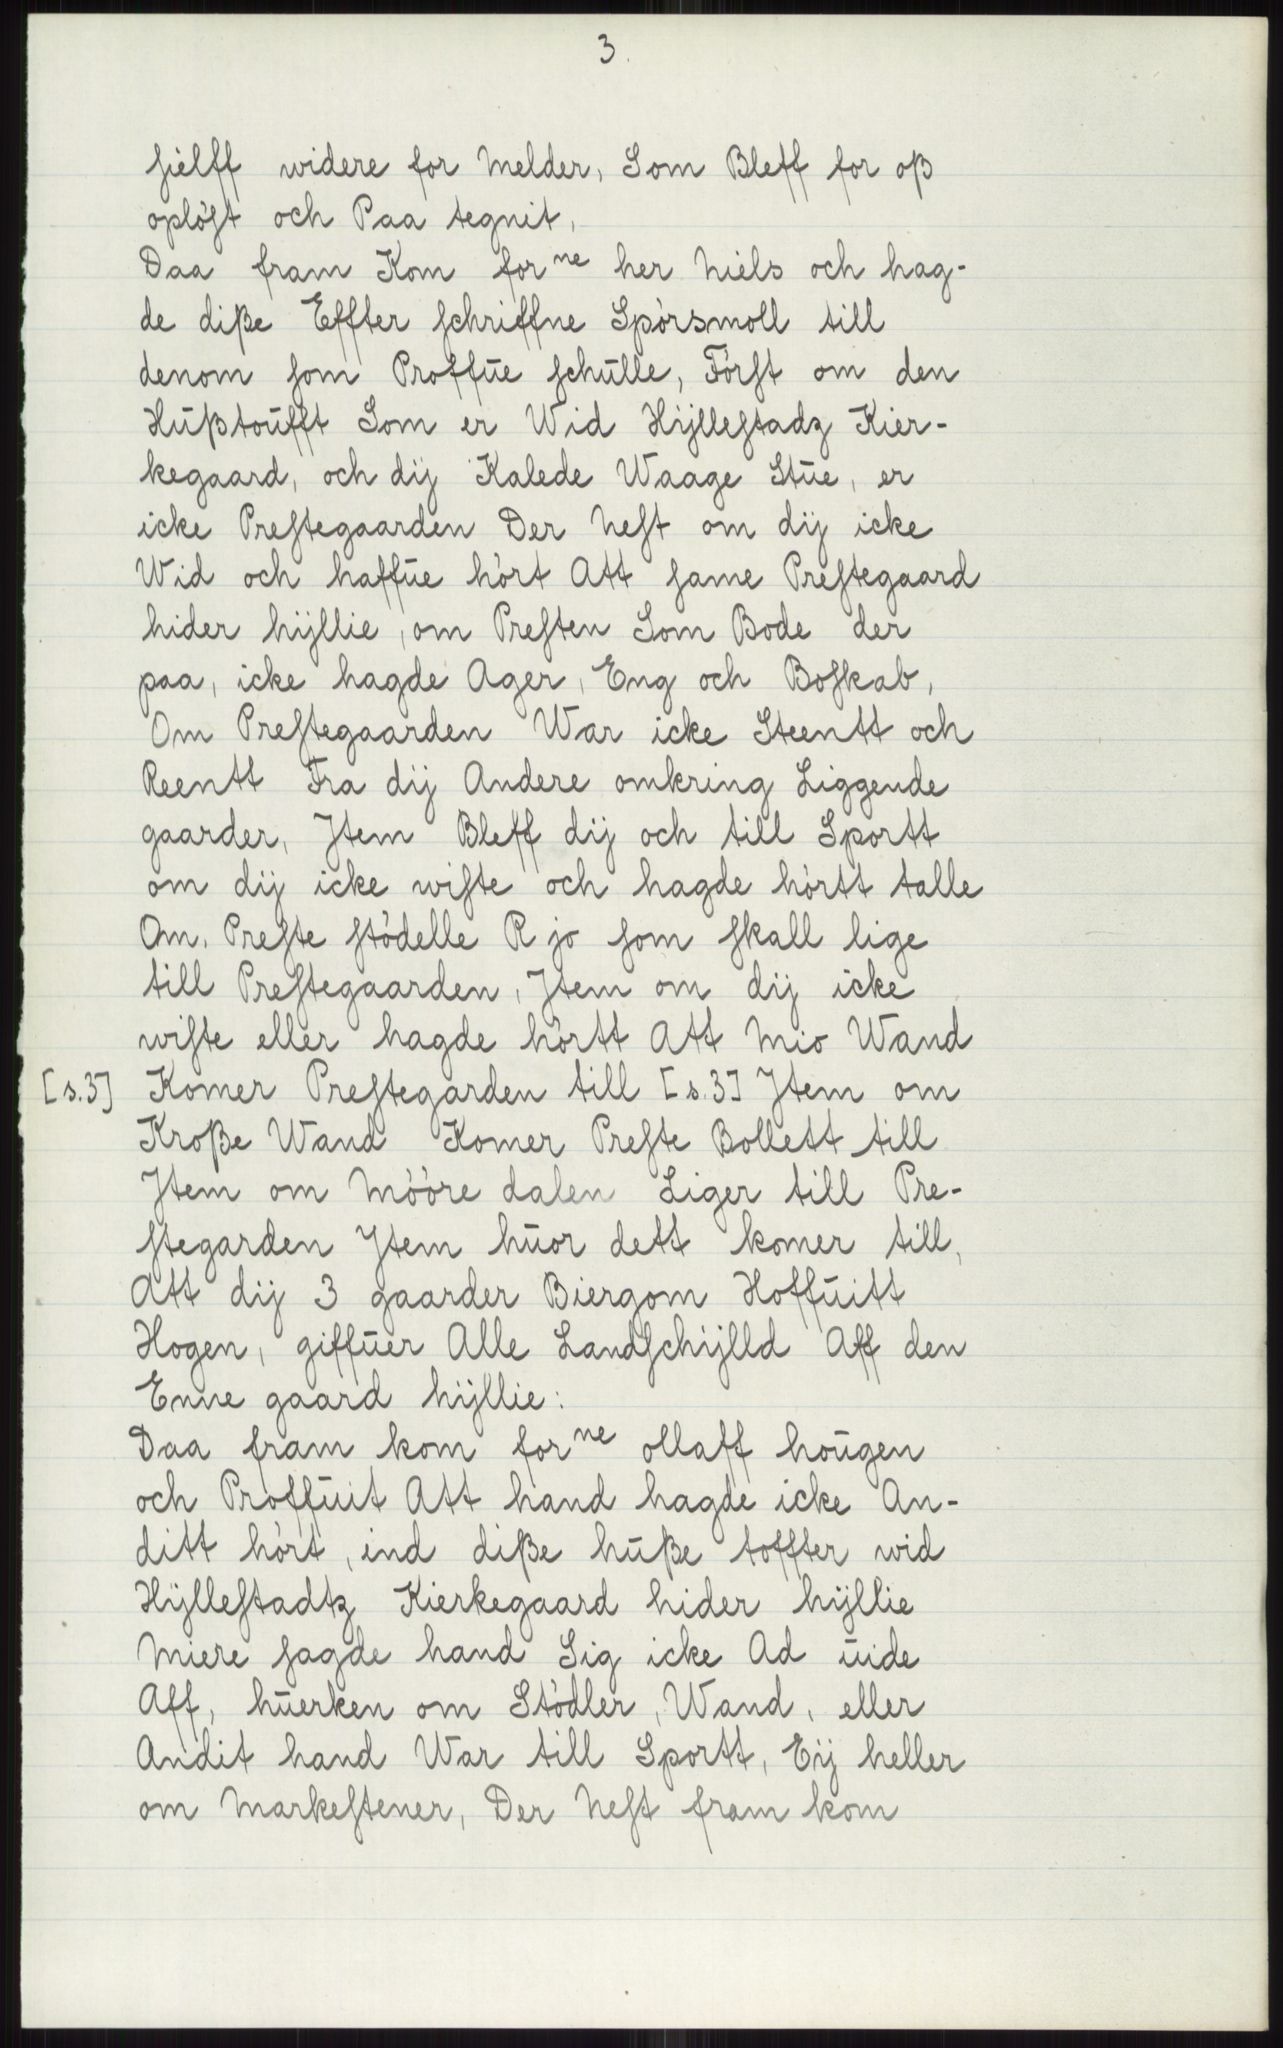 3.
sielff widere for Melder, Som Bleff for oß
opløst och Paa tegnit,
Daa fram Kom forne her Niels och hag-
de diße Effter schriffne Spørsmoll till
denom som Proffue schulle, Først om den
Hußtoufft Som er Wid Hÿllestadz Kier-
kegaard, och dÿ Kalede Waage Stue, er
icke Prestegaarden Der Nest om dÿ icke
Wid och haffue hørt Att same Prestegaard
hider hÿllie, om Presten Som Bode der
paa, icke hagde Ager, Eng och Boskab,
Om Prestegaarden War icke Steentt och
Reentt Fra dÿ Andere omkring Liggende
gaarder, Jtem Bleff dÿ och till Sportt
om dÿ icke wiste och hagde hørtt talle
Om, Preste stødelle R jo som skall lige
till Prestegaarden, Jtem om dÿ icke
wiste eller hagde hørtt Att Mio Wand
[s.3] Komer Prestegarden till [s.3] Jtem om
Kroße Wand Komer Preste Bollett till
Jtem om Mööre dalen Liger till Pre-
stegarden Jtem huor dett komer till,
Att dÿ 3 gaarder Biergom Hoffuitt
Hogen, giffuer Alle Landschÿlld Aff den
Enne gaard hÿllie:
Daa fram kom forne ollaff hougen
och Proffuit Att hand hagde icke An-
ditt hørt, ind diße huße toffter wid
Hÿllestadtz Kierkegaard hider hÿllie
Miere sagde hand Sig icke Ad uide
Aff, huerken om Stødler, Wand, eller
Andit hand War till Sportt, Eÿ heller
om Markestener, Der Nest fram kom